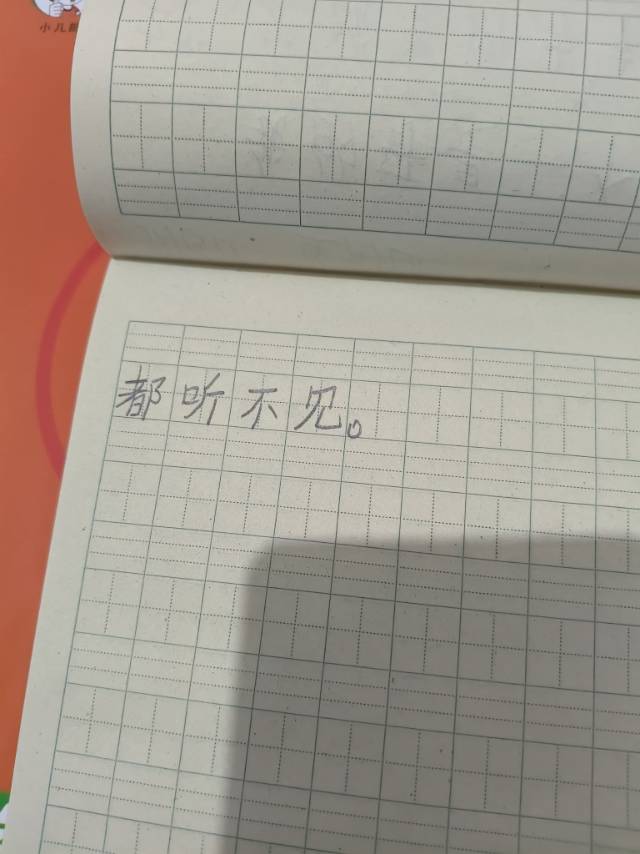 小儿
都听不见。